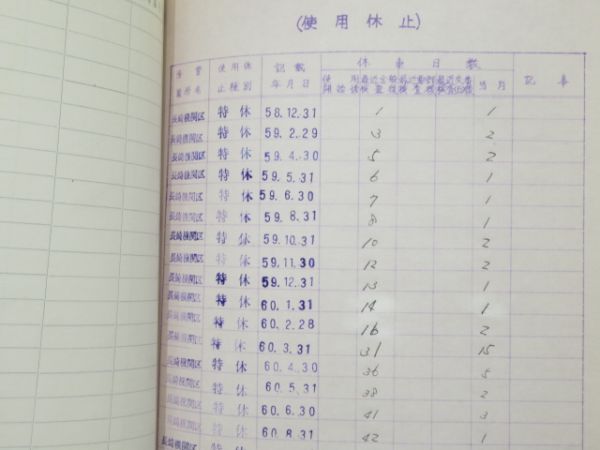 (使用休止)
休車日数
使用休
止種別
記載
年月日
当月
記事
長崎機関区 特休 58.12.31 1 1
長崎機関区 特休 59.2.29 3 2
長崎機関区 特休 59.4.30 5 2
長崎機関区 特休 59.5.31 6 1
長崎機関区 特休 59.6.30 7 1
長崎機関区 特休 59.8.31 8 1
長崎機関区 特休 59.10.31 10 2
長崎機関区 特休 59.11.30 12 2
長崎機関区 特休 59.12.31 13 1
長崎機関区 特休 60.1.31 14 1
長崎機関区 特休 60.2.28 16 2
長崎機関区 特休 60.3.31 31 15
長崎機関区 特休 60.4.30 36 5
長崎機関区 特休 60.5.31 38 2
長崎機関区 特休 60.6.30 41 3
長崎機関区 特休 60.8.31 42 1